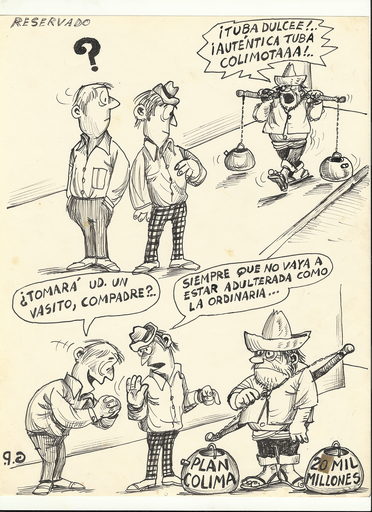 RESERVADO
?
¡TUBA DULCEE!..
¡AUTÉNTICA TUBA
COLIMOTAAA!..
¿TOMARÁ UD. UN
VASITO, COMPADRE?..
SIEMPRE QUE NO VAYA A
ESTAR ADULTERADA COMO
LA ORDINARIA...
PLAN
COLIMA
20 MIL
MILLONES